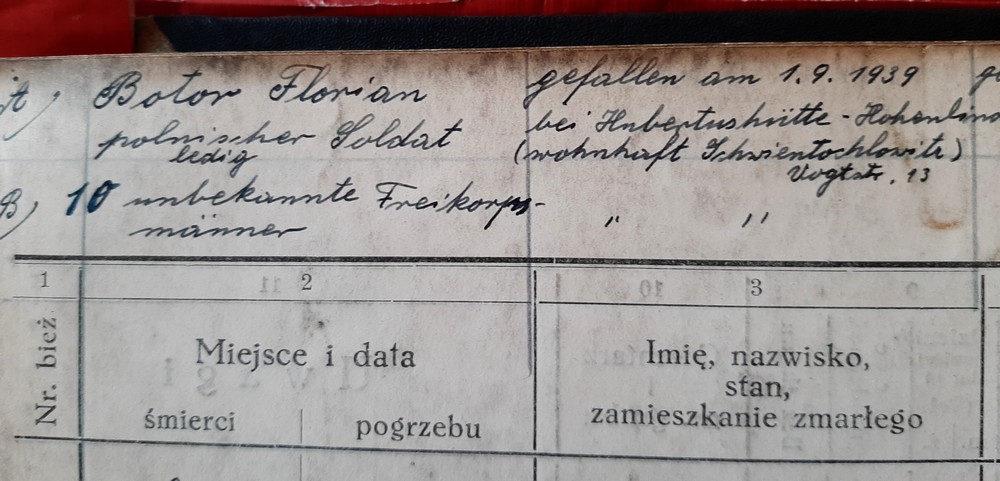 A) Botor Florian gefallen am 1. 9. 1939
polnischer Soldat bei Hubertushütte - Hohenlin
ledig (wohnhaft Schwientochlowitz)
Vogtstr. 13
B) 10 unbekannte Freikorps-
männer " "
1 2 3
Nr. bież. Miejsce i data Imię, nazwisko,
stan,
śmierci pogrzebu zamieszkanie zmarłego